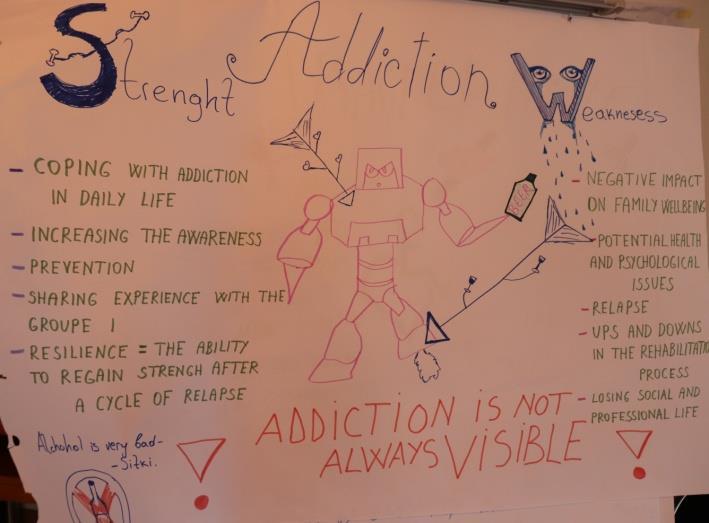 Addiction
Strenght
Weaknesess
- COPING WITH ADDICTION
IN DAILY LIFE
- INCREASING THE AWARENESS
- PREVENTION
- SHARING EXPERIENCE WITH THE
GROUPE 1
- RESILIENCE = THE ABILITY
TO REGAIN STRENGH AFTER
A CYCLE OF RELAPSE
BEER
- NEGATIVE IMPACT
ON FAMILY WELLBEING
- POTENTIAL HEALTH
AND PSYCHOLOGICAL
ISSUES
- RELAPSE
- UPS AND DOWNS
IN THE REHABILITATIO
PROCESS
- LOSING SOCIAL AND
PROFESSIONAL LIFE
ADDICTION IS NOT
ALWAYS VISIBLE
! !
Alchohol is very bad-
-Sitki.